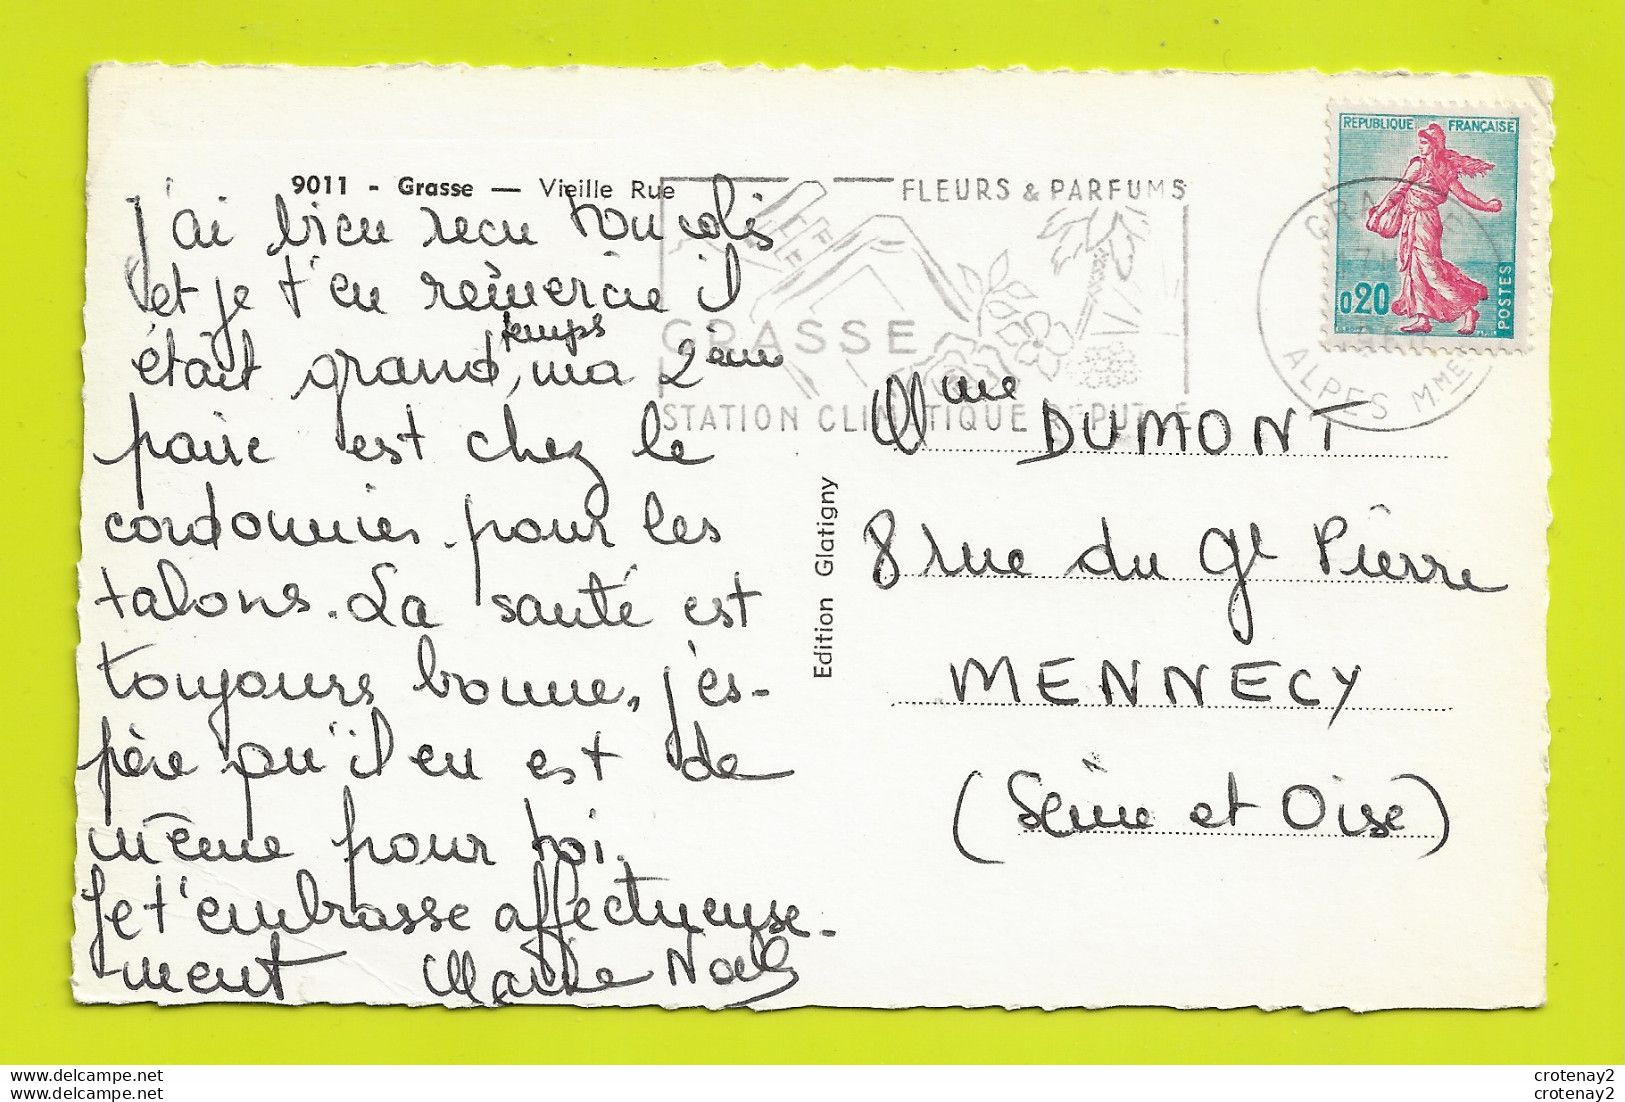 9011 - Grasse — Vieille Rue
j'ai bien reçu ton colis
et je t'en remercie il
était grand temps, ma 2ème
paire est chez le
cordonnier pour les
talons. La santé est
toujours bonne, j'es-
père qu'il en est de
même pour toi.
Je t'embrasse affectueuse-
ment Marie Noël
FLEURS & PARFUMS
GRASSE
STATION CLIMATIQUE RÉPUTÉE
GRASSE
ALPES Mmes
REPUBLIQUE FRANÇAISE
0,20
POSTES
Edition Glatigny
Mme DUMONT
8 rue du Gl Pierre
MENNECY
(Seine et Oise)
www.delcampe.net
www.delcampe.net
crotenay2
crotenay2